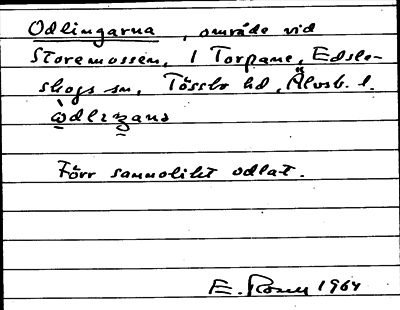 Odlingarna, område vid
Storemossen, 1 Torpane, Edsle-
skogs sn, Tössbo hd, Älvsb. l.
Förr sannolikt odlat.
E. 1964